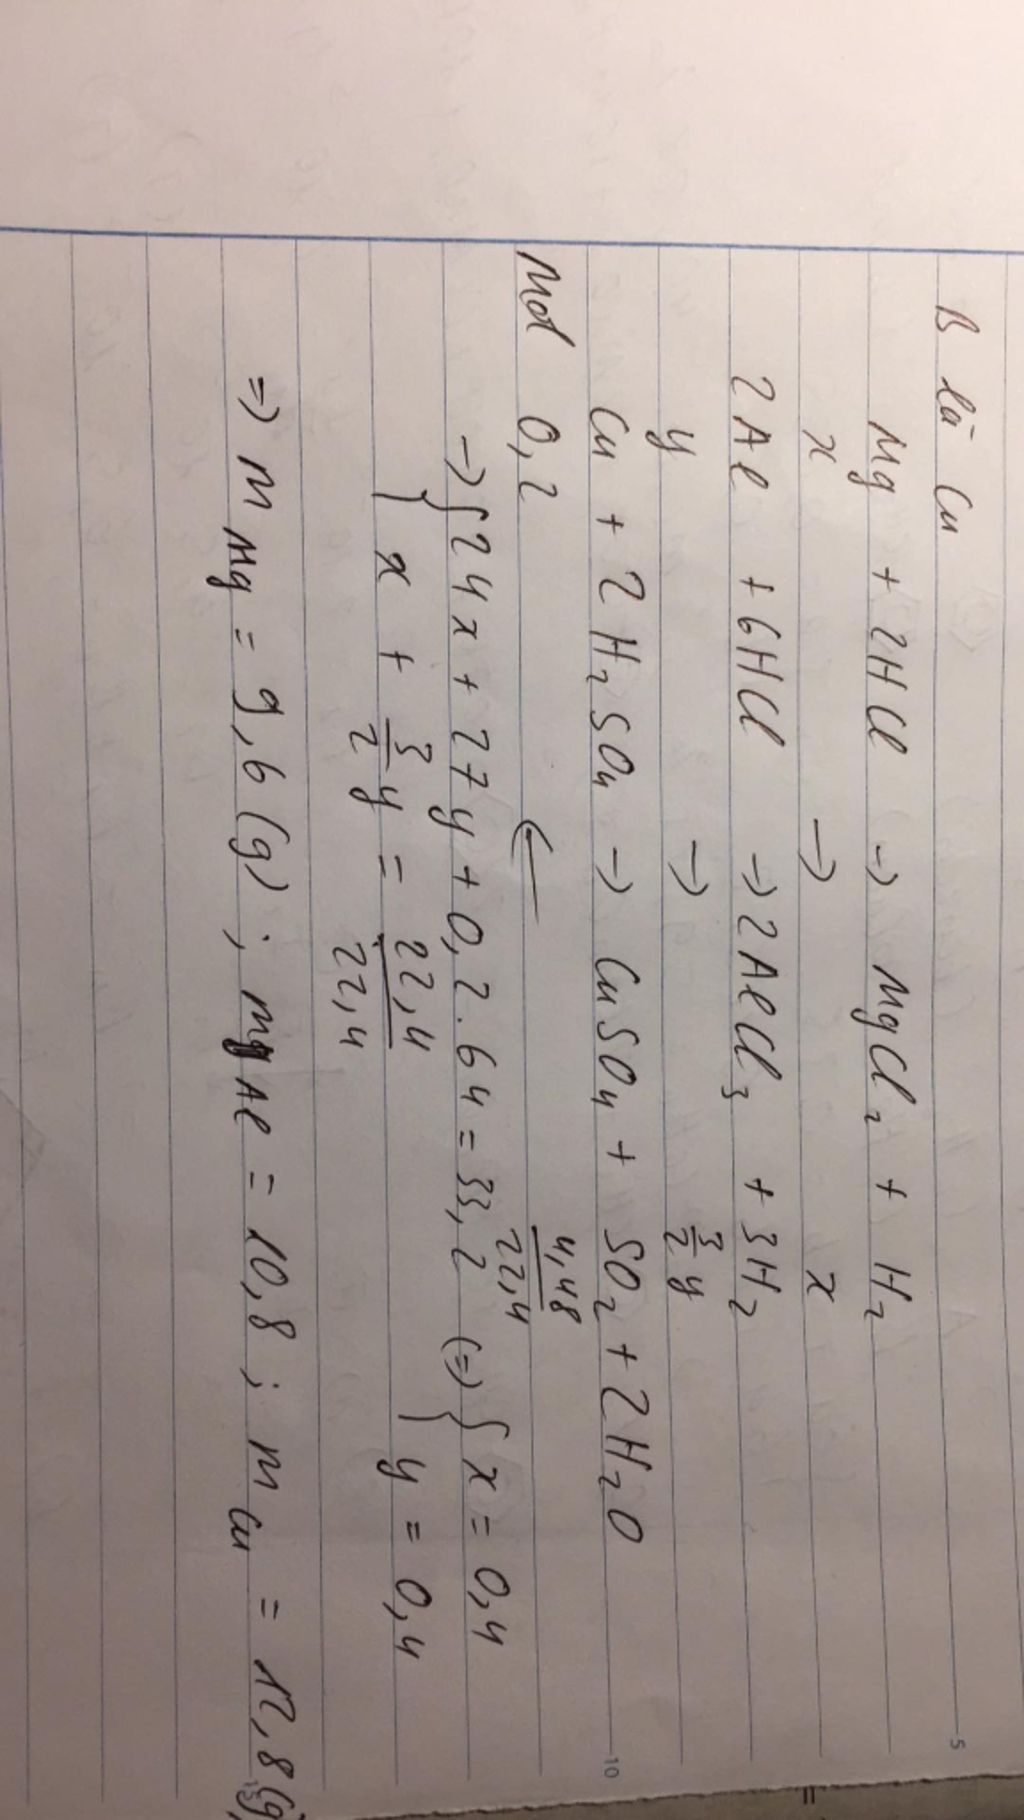 B là Cu
Mg + 2HCl → MgCl₂ + H₂
x → x
2Al + 6HCl → 2AlCl₃ + 3H₂
y → 3/2 y
Cu + 2H₂SO₄ → CuSO₄ + SO₂ + 2H₂O
Mol 0,2 ← 4,48/22,4
→ { 24x + 27y + 0,2.64 = 33,2 (=) { x = 0,4
x + 3/2 y = 22,4/22,4 y = 0,4
=) m Mg = 9,6 (g) ; m Al = 10,8 ; m Cu = 12,8 (g)
5
10
15